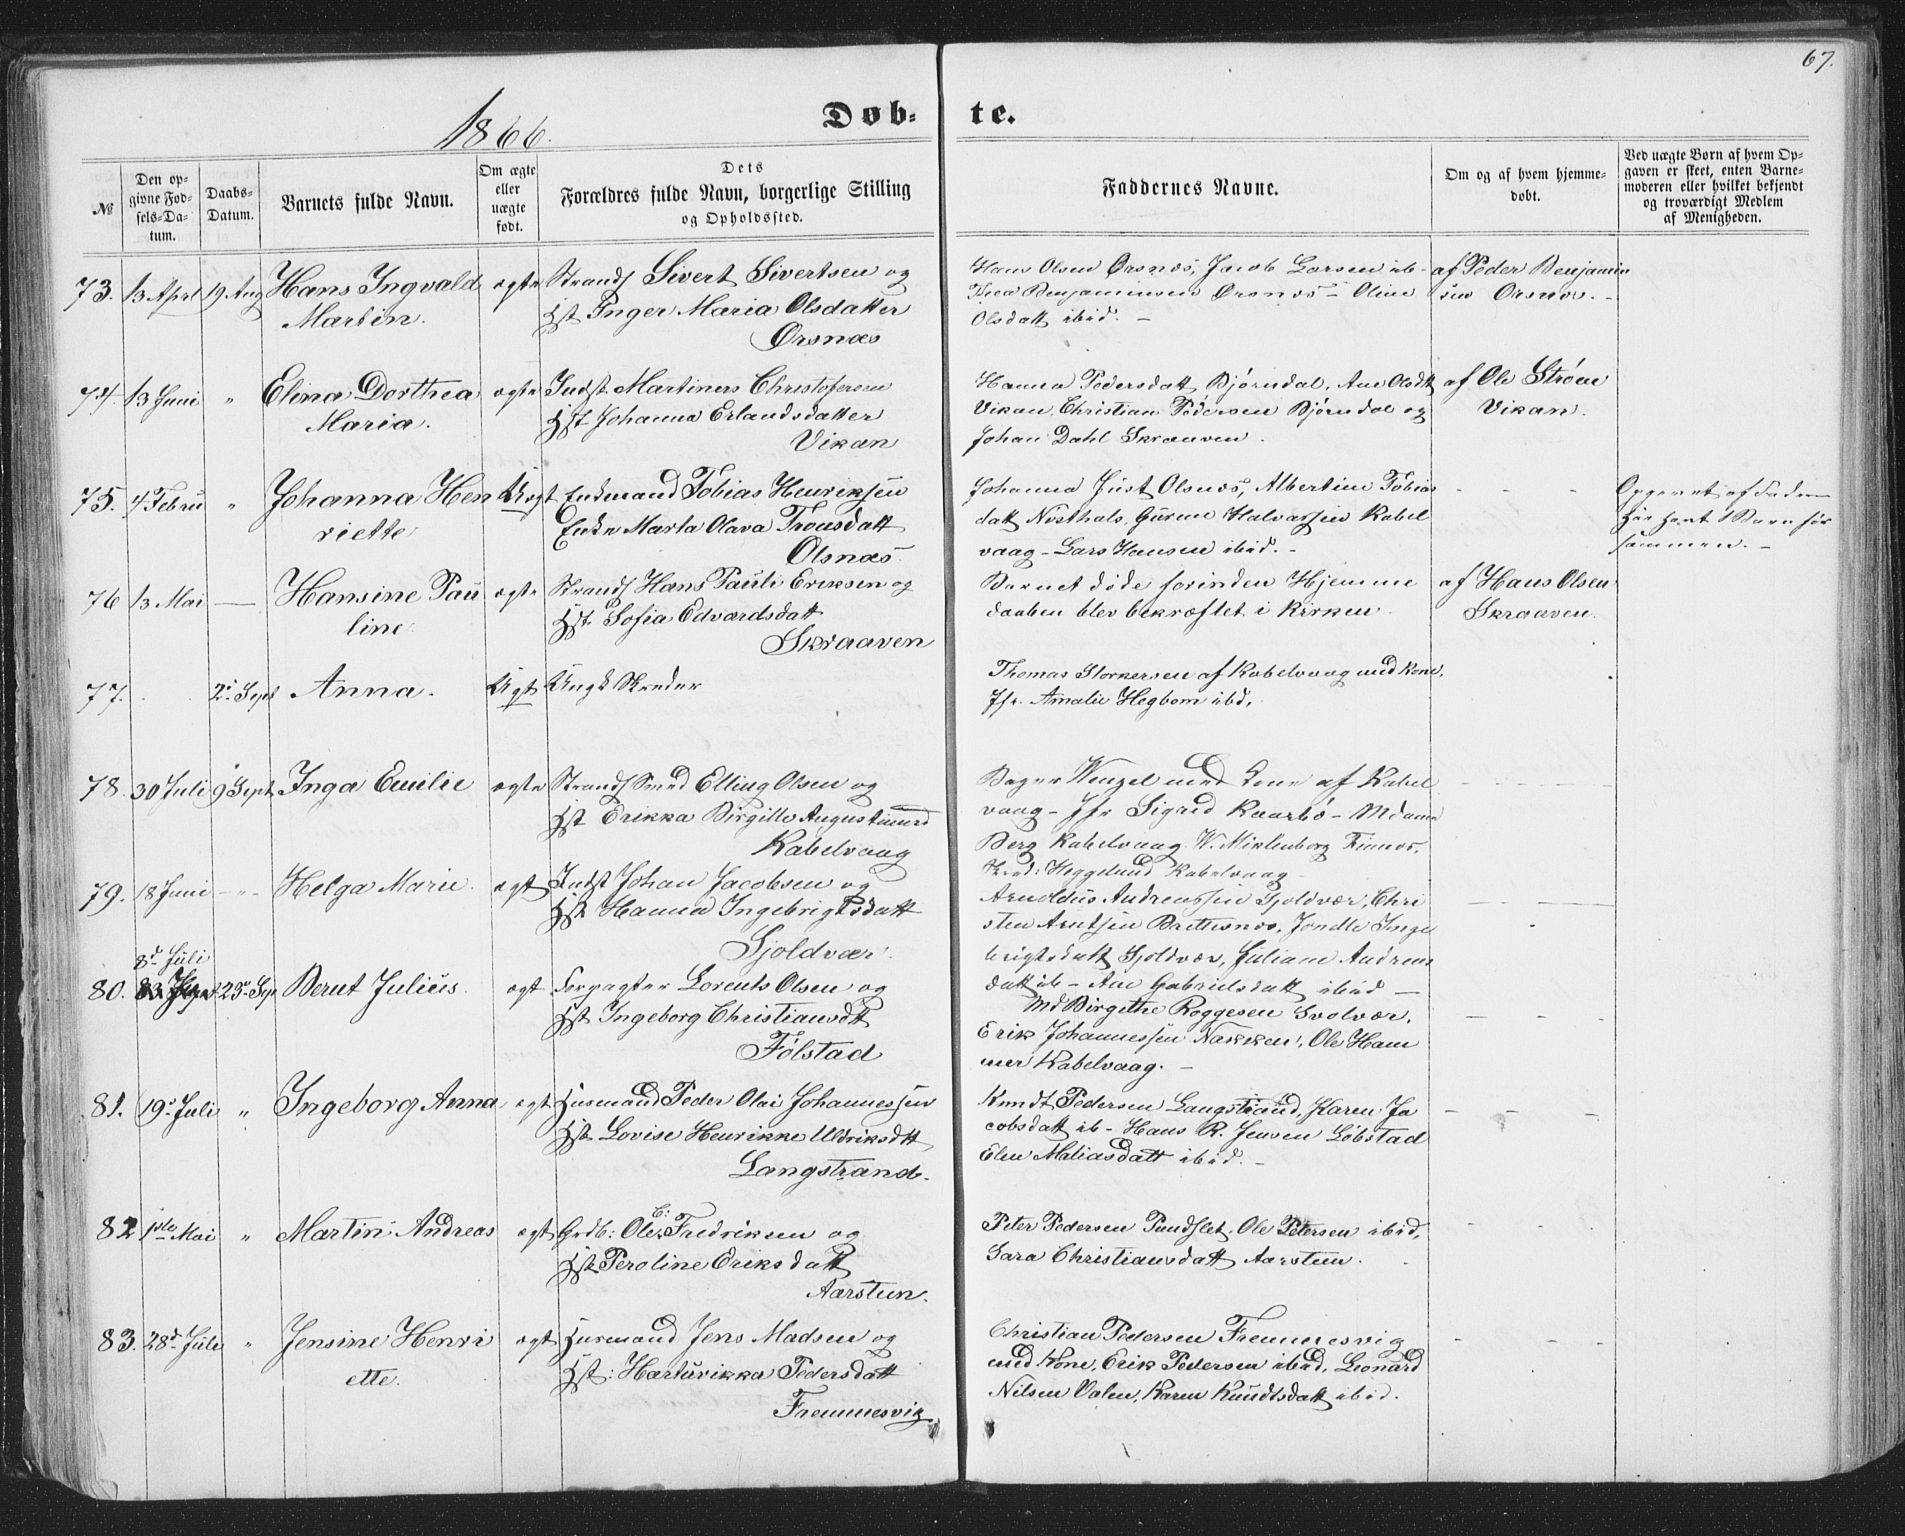 67.
1866.
Døb-
te.
№
Den op-
givne Fød-
sels-Da-
tum.
Daabs-
Datum.
Barnets fulde Navn.
Om ægte
eller
uægte
født.
Dets
Forældres fulde Navn, borgerlige Stilling
og Opholdssted.
Faddernes Navne.
Om og af hvem hjemme-
døbt.
Ved uægte Børn af hvem Op-
gaven er skeet, enten Barne-
moderen eller hvilket bekjendt
og troværdigt Medlem
af Menigheden.
73. 13 April 19 Aug Hans Ingvald
Martin.
ægte
Strands Sivert Sivertsen og
Hst Inger Maria Olsdatter
Ørsnæs
Hans Olsen Ørsnæs, Jacob Larsen ib-
Thea Benjaminsen Ørsnæs - Oline
Olsdatt ibid. -
af Peder Benjamin
sen Orsnæs. -
74. 13 Juni " Elina Dorthea
Maria.
ægte
Indst Martines Christofersen
Hst Johanna Erlandsdatter
Vikan
Hanna Pedersdatt Bjørndal, Ane Olsdtt
Vikan, Christian Pedersen Bjørndal og
Johan Dahl Skraaven.
af Ole Strøm
Vikan.
75. 4 Febru " Johanna Hen
riette
Uægt
Enkemand Tobias Henriksen
Enke Marta Olava Tronsdatt
Olsnæs
Johanna Just Olsnæs, Albertine Tobias
datt Nøsthals, Gurine Halvorsen Kabel
vaag - Lars Hansen ibid. -
- - -
Opgivet af Faderen
har havt 1 Barn før
sammen. -
76 13 Mai — Hansine Pau
line
ægte
Strands Hans Pauli Eriksen og
Hst Sofia Edvardsdatt
Skraaven
Barnet døde forinden Hjemme
daaben blev bekræftet i Kirken.
af Hans Olsen
Skraaven.
77. 2. Sept Anna.
Uægt
Ungk Skreder
Thomas Storkersen af Kabelvaag med Kone,
Jfr. Amalie Hegbom ibd.
78. 30 Juli 9 Sept Inga Emilie
ægte
Strands Smed Elling Olsen og
Hst Erikka Birgitte Augustinusd
Kabelvaag
Bager Wenzel med Kone af Kabel
vaag - Jfr Sigrid Kaarbø - Mdame
Berg Kabelvaag W. Miklenborg Finnæs,
Heggelund Kabelvaag
79. 18 Juni -"- Helga Marie
ægt
Indst Johan Jacobsen og
Hst Hanna Ingebrigtsdatt
Gjoldvær
Arnoldus Andreassen Gjoldvær, Chri
sten Arntsen Brettesnæs, Jonette Inge
brigtsdatt Gjoldvær, Juliane Andreas
datt ib - Ane Gabrielsdatt ibid —
80. 8d Juli 23. Sep Bernt Julius.
ægt
Forpagter Lorents Olsen og
Hst Ingeborg Christiansdtt
Følstad
Md Birgithe Roggesen Svolvær,
Erik Johannessen Nakken, Ole Ham
mer Kabelvaag. -
81. 19. Juli " Ingeborg Anna
ægt
Husmand Peder Olai Johannessen
Hst Lovise Henrikke Uldriksdtt
Langstrand.
Knudt Pedersen Langstrand, Karen Ja
cobsdatt ib - Hans R. Jensen Løbstad
Elen Matiasdatt ibid. -
82 1ste Mai " Martin Andreas
ægt
Grdb: Ole E: Fredriksen og
Hst Peroline Eriksdatt
Aarsteen.
Peter Pedersen Pundslet, Ole Petersen ibid,
Sara Christiansdatt Aarsteen.
83. 28d Juli " Jensine Henri
ette.
ægt
Husmand Jens Madsen og
Hst: Harturikka Pedersdatt
Fremmesvig
Christian Pedersen Fremmesvig
med Kone, Erik Pedersen ibid, Leonard
Nilsen Valen, Karen Knudtsdatt ibid.